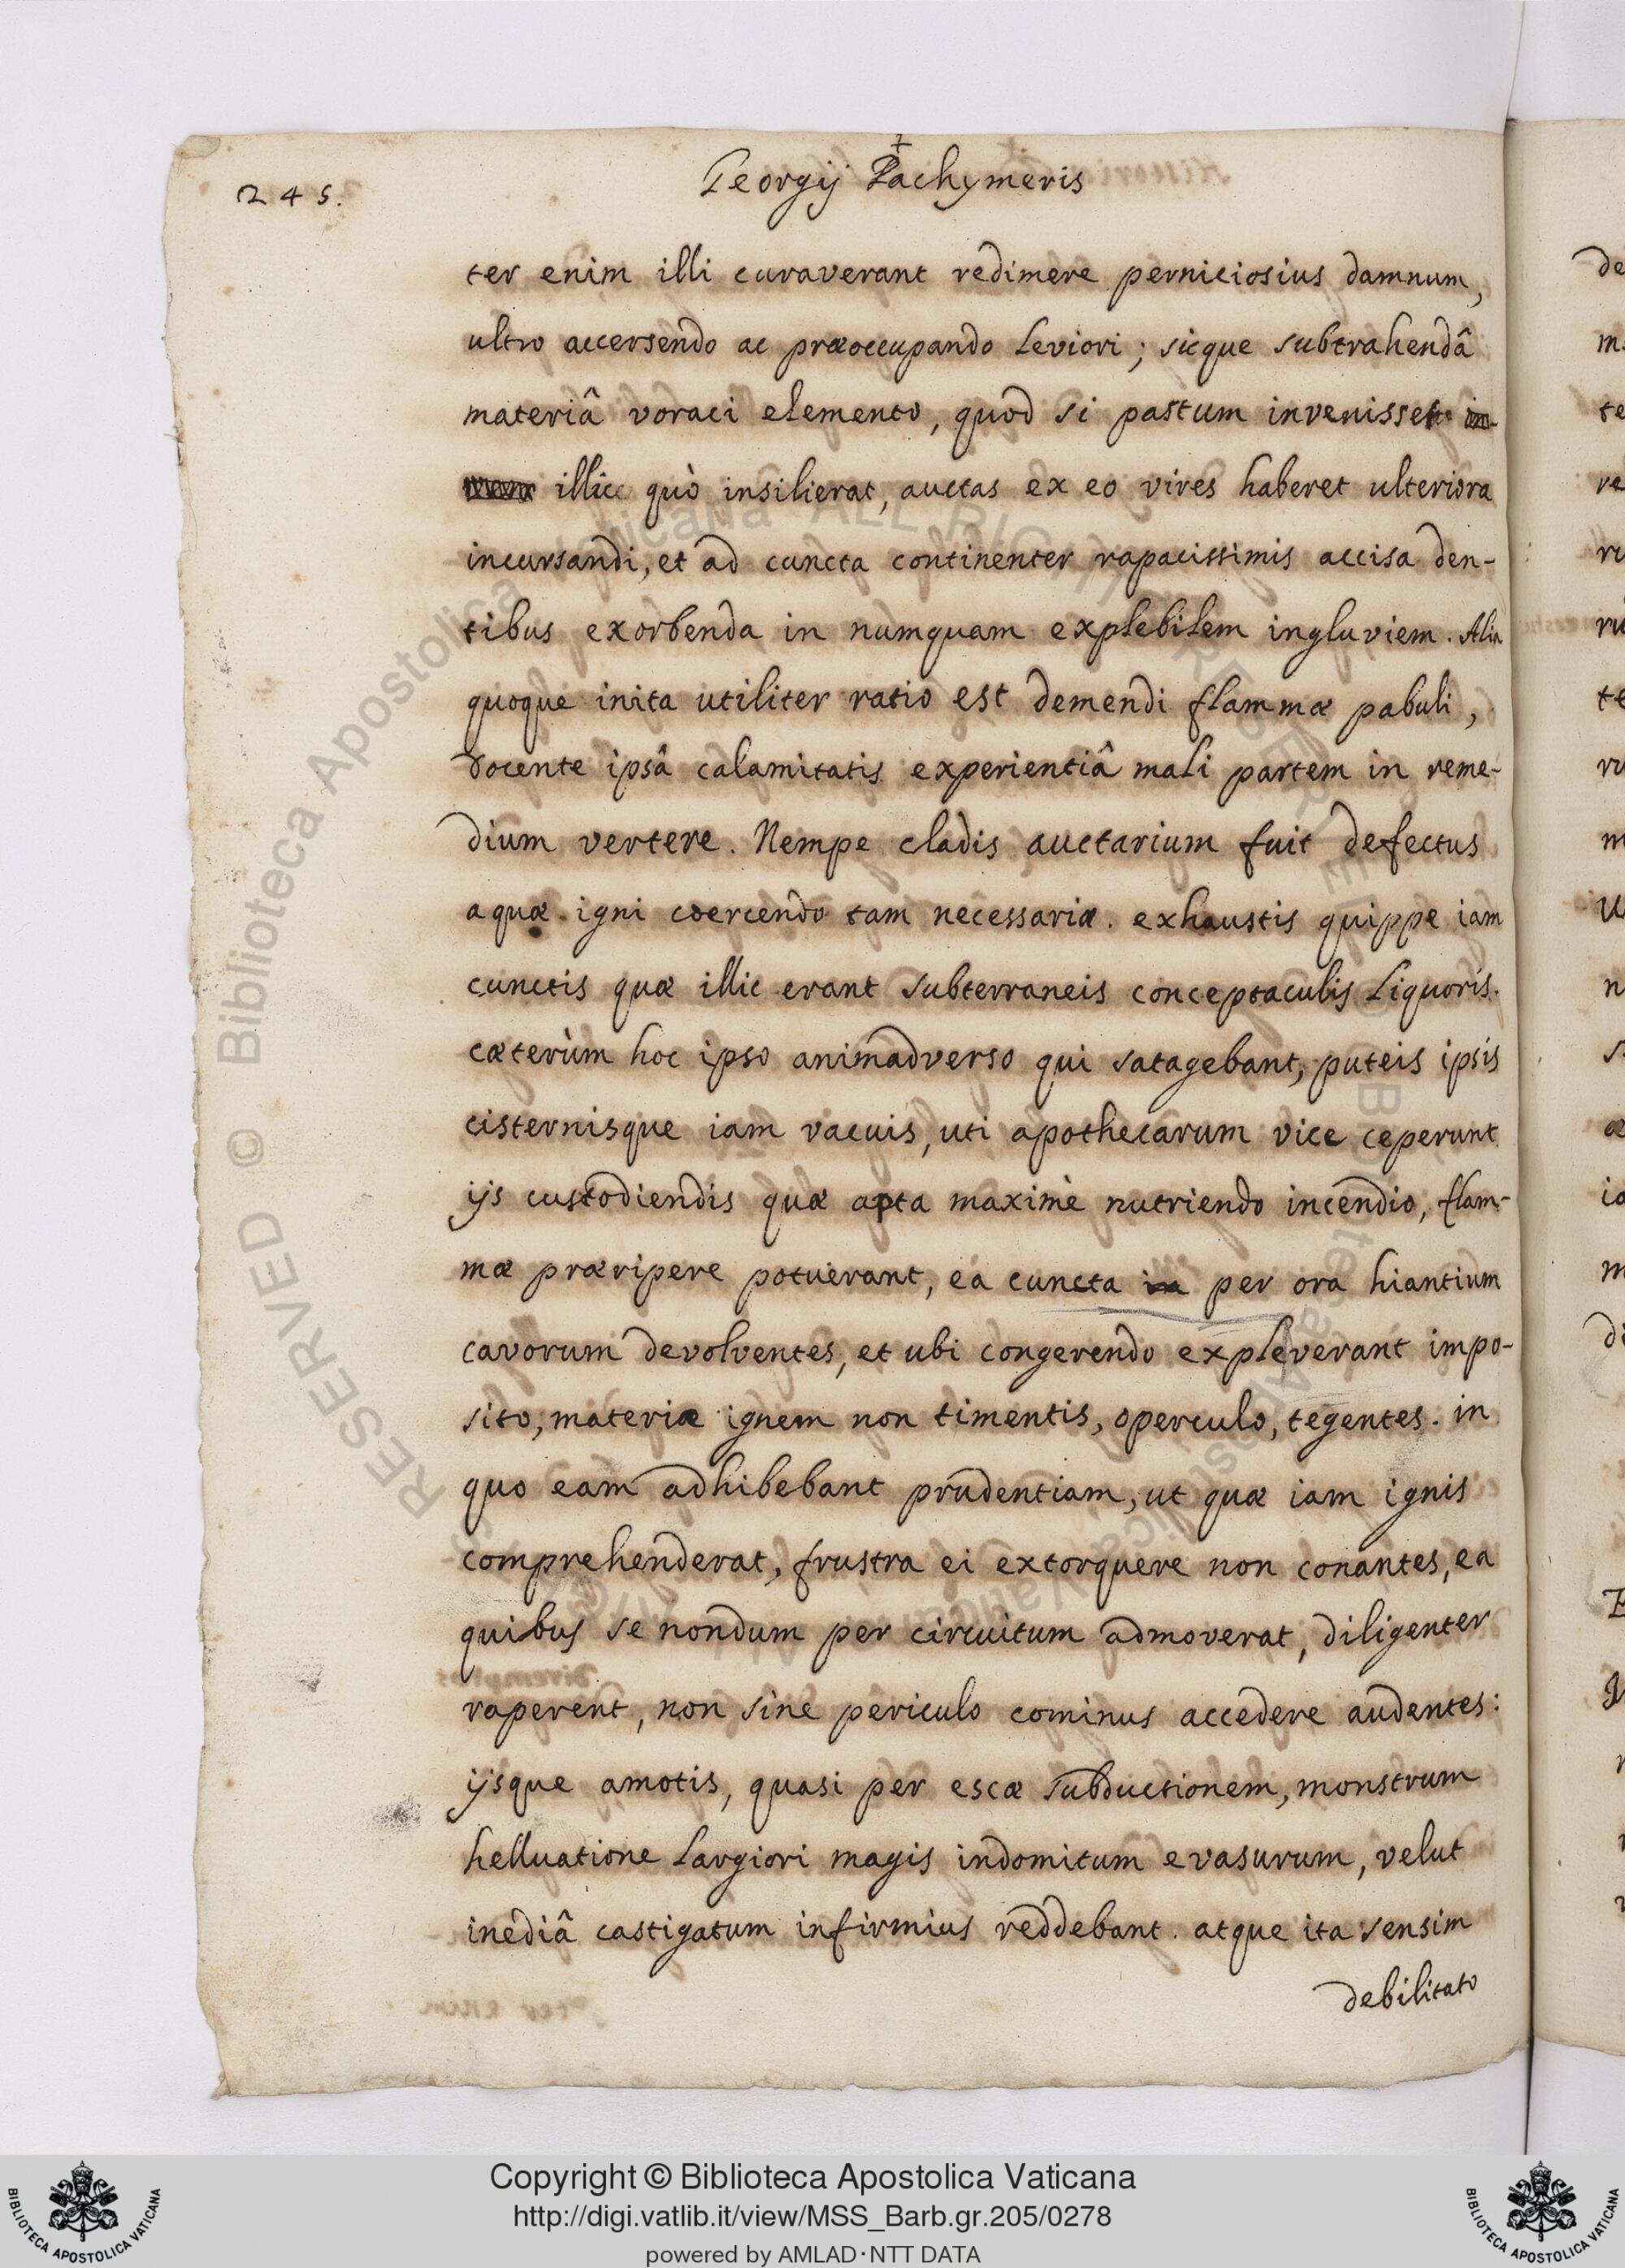 245.
Georgij Pachymeris
ter enim illi curaverant redimere perniciosius damnum,
ultro accersendo ac præoccupando leviori; sicque subtrahendâ
materiâ voraci elemento, quod si pastum invenisset
illic quò insilierat, auctas ex eo vires haberet ulteriora
incursandi, et ad cuncta continenter rapacissimis accisa den-
tibus exorbenda in numquam explebilem ingluviem. Alia
quoque inita utiliter ratio est demendi flammæ pabuli,
docente ipsâ calamitatis experientiâ mali partem in reme-
dium vertere. Nempe cladis auctarium fuit defectus
aquæ igni coercendo tam necessariæ. exhaustis quippe iam
cunctis quæ illic erant subterraneis conceptaculis liquoris.
cæterùm hoc ipso animadverso qui satagebant, puteis ipsis
cisternisque iam vacuis, uti apothecarum vice ceperunt
ijs custodiendis quæ apta maximè nutriendo incendio, flam-
mæ præripere potuerant, ea cuncta in per ora hiantium
cavorum devolventes, et ubi congerendo expleverant impo-
sito, materiæ ignem non timentis, operculo, tegentes. in
quo eam adhibebant prudentiam, ut quæ iam ignis
comprehenderat, frustra ei extorquere non conantes, ea
quibus se nondum per circuitum admoverat, diligenter
raperent, non sine periculo cominus accedere audentes:
ijsque amotis, quasi per escæ subductionem, monstrum
helluatione largiori magis indomitum evasurum, velut
inediâ castigatum infirmius reddebant. atque ita sensim
debilitato
Copyright © Biblioteca Apostolica Vaticana
http://digi.vatlib.it/view/MSS_Barb.gr.205/0278
powered by AMLAD·NTT DATA
BIBLIOTECA APOSTOLICA VATICANA
BIBLIOTECA APOSTOLICA VATICANA